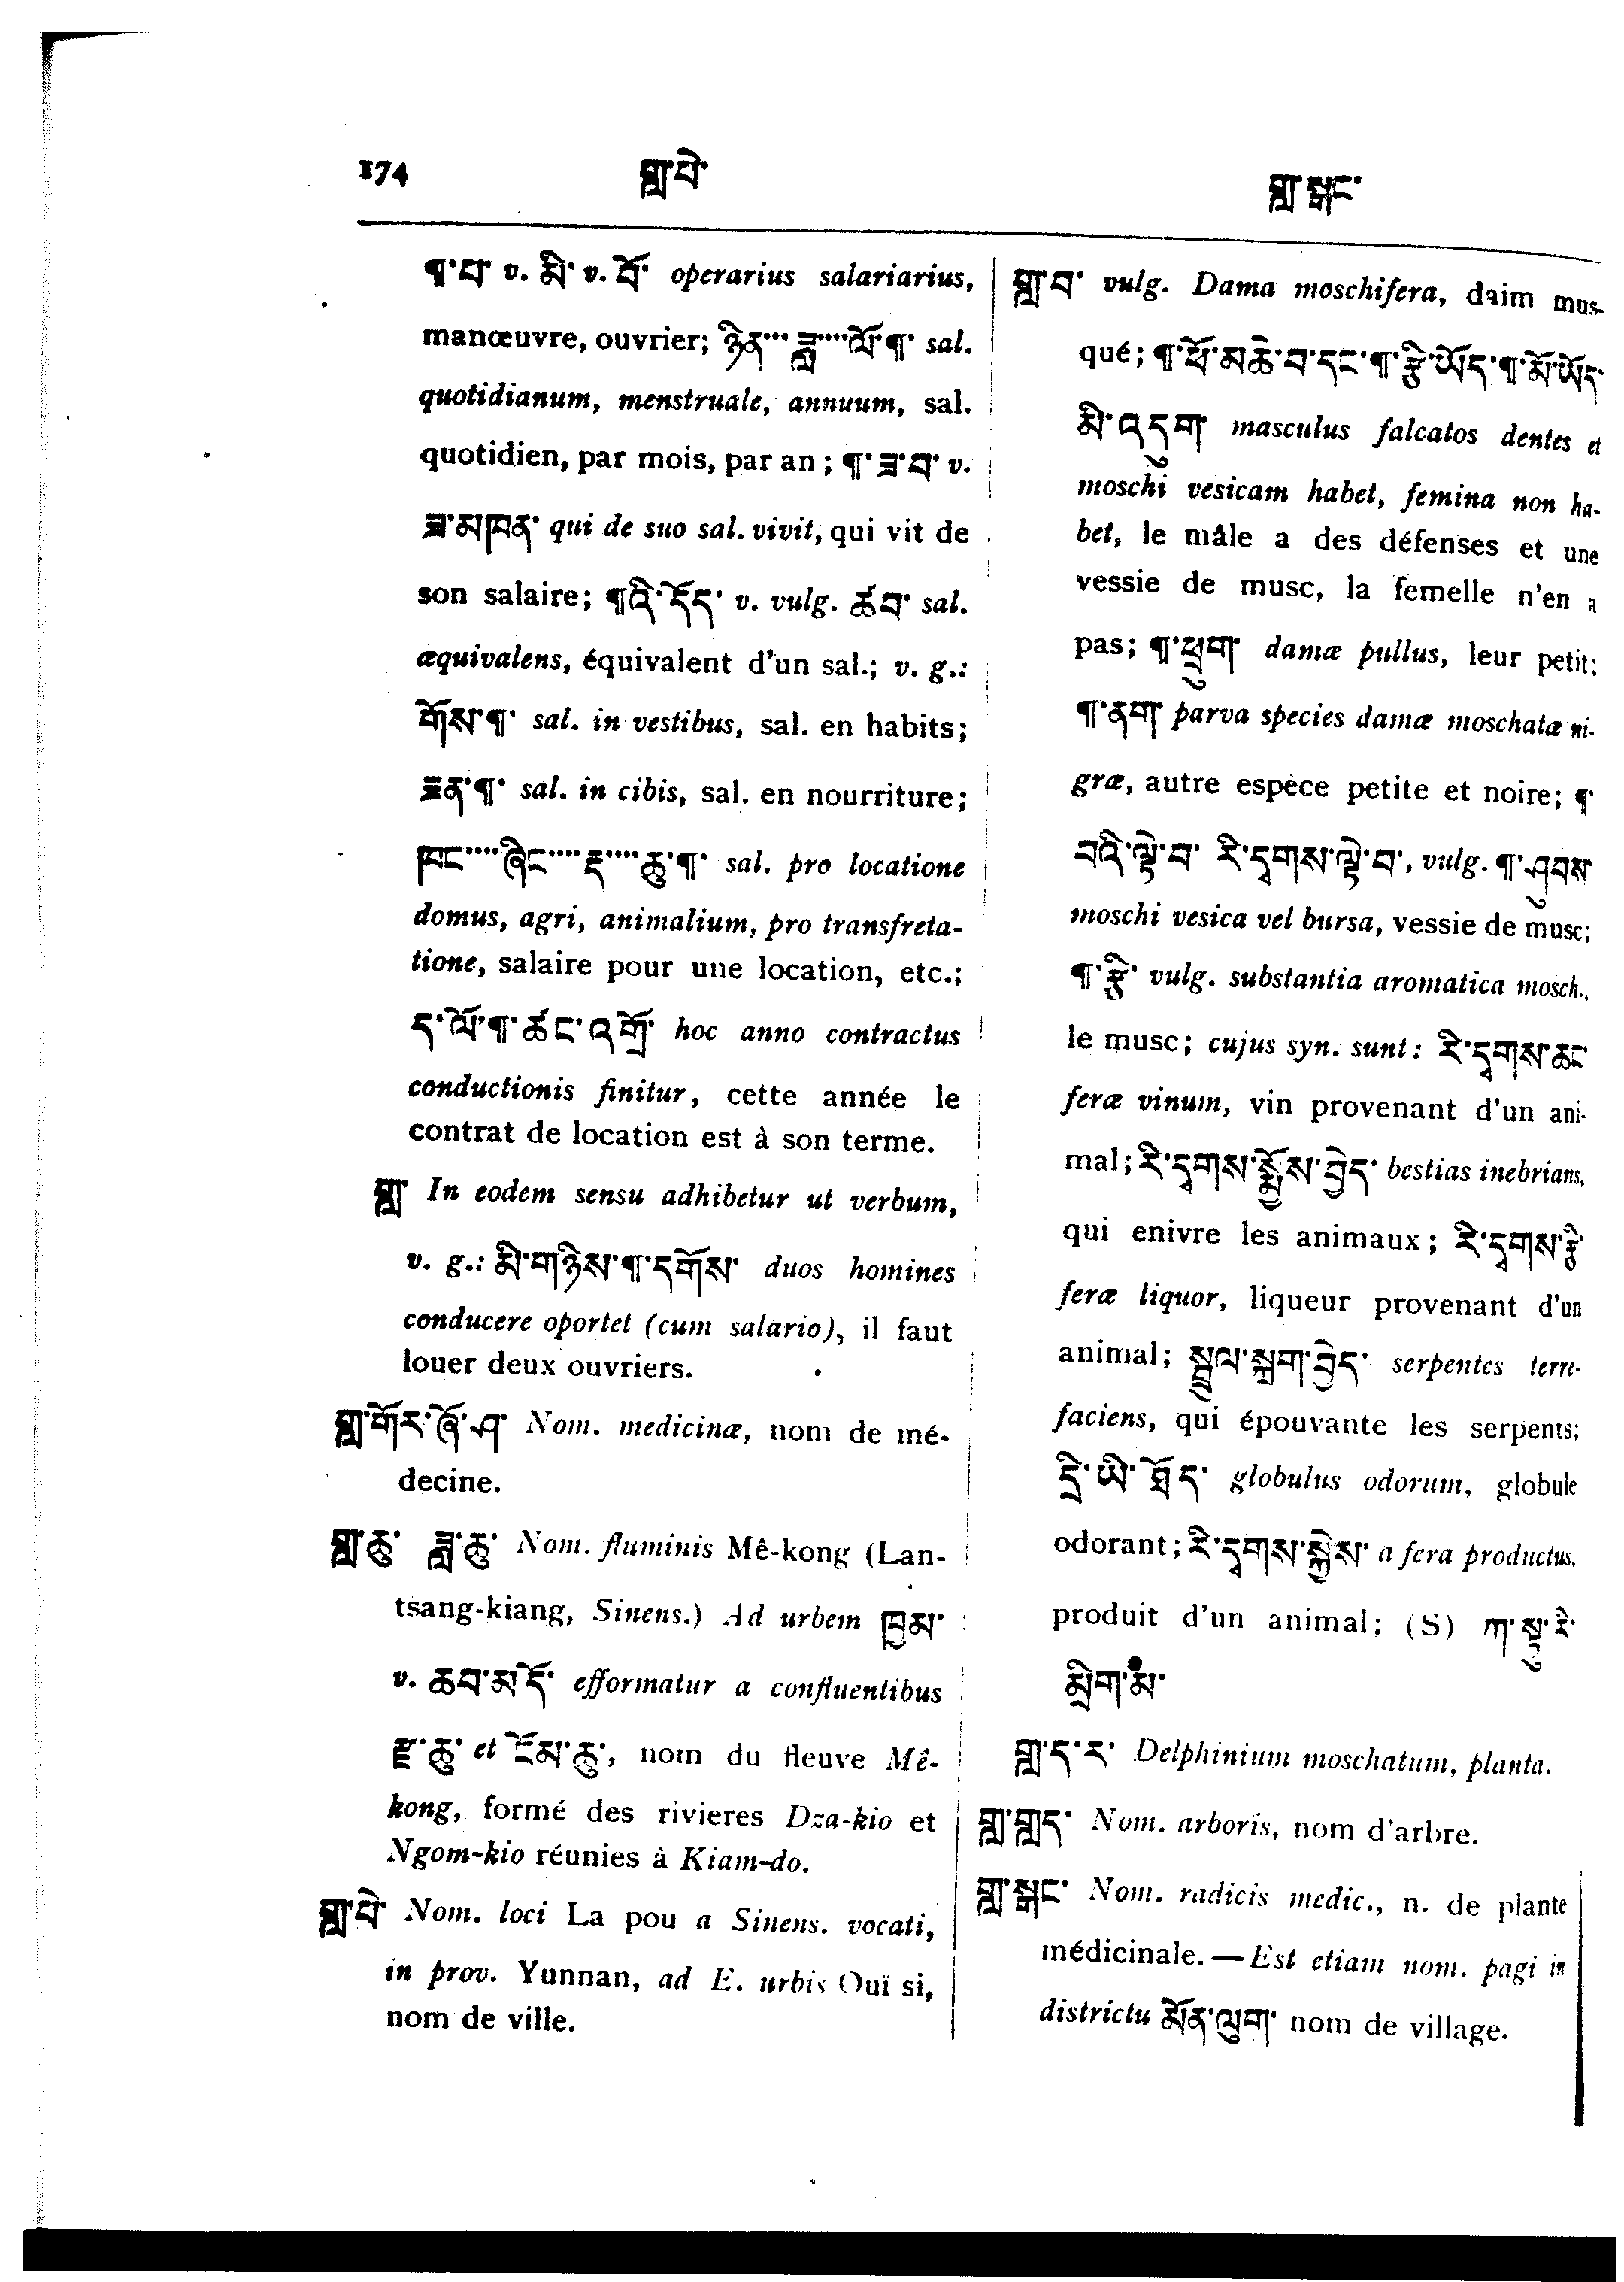 174 གླ་པེ་ གླ་སྒང་
¶་པ་ v. མི་ v. བོ་ operarius salariarius,
manœuvre, ouvrier; ཉིན་་་་ཟླ་་་་ལོ་¶་ sal.
quotidianum, menstruale, annuum, sal.
quotidien, par mois, par an; ¶་ཟ་བ་ v.
ཟ་མཁན་ qui de suo sal. vivit, qui vit de
son salaire; ¶འི་དོད་ v. vulg. ཚབ་ sal.
æquivalens, équivalent d'un sal.; v. g.:
གོས་¶་ sal. in vestibus, sal. en habits;
ཟན་¶་ sal. in cibis, sal. en nourriture;
ཁང་་་་་ཞིང་་་་་རྟ་་་་་ཆུ་¶་ sal. pro locatione
domus, agri, animalium, pro transfreta-
tione, salaire pour une location, etc.;
ད་ལོ་¶་ཚང་འགྲོ་ hoc anno contractus
conductionis finitur, cette année le
contrat de location est à son terme.
གླ་ In eodem sensu adhibetur ut verbum,
v. g.: མི་གཉིས་¶་དགོས་ duos homines
conducere oportet (cum salario), il faut
louer deux ouvriers.
གླ་གོར་ཞོ་ཤ་ Nom. medicinæ, nom de mé-
decine.
གླ་ཆུ་ ཟླ་ཆུ་ Nom. fluminis Mê-kong (Lan-
tsang-kiang, Sinens.) Ad urbem ཁྱམ་
v. ཆབ་མདོ་ efformatur a confluentibus
རྫ་ཆུ་ et ངོམ་ཆུ་, nom du fleuve Mê-
kong, formé des rivieres Dza-kio et
Ngom-kio réunies à Kiam-do.
གླ་པེ་ Nom. loci La pou a Sinens. vocati,
in prov. Yunnan, ad E. urbis Ouï si,
nom de ville.
གླ་བ་ vulg. Dama moschifera, daim mus-
qué; ¶་ཕོ་མཆེ་བ་དང་¶་རྩི་ཡོད་¶་མོ་ཡོད་
མི་འདུག་ masculus falcatos dentes et
moschi vesicam habet, femina non ha-
bet, le mâle a des défenses et une
vessie de musc, la femelle n'en a
pas; ¶་ཕྲུག་ damæ pullus, leur petit;
¶་ནག་ parva species damæ moschatæ ni-
græ, autre espèce petite et noire; ¶་
བའི་ལྟེ་བ་ རི་དྭགས་ལྟེ་བ་, vulg. ¶་ཤུབས་
moschi vesica vel bursa, vessie de musc;
¶་རྩི་ vulg. substantia aromatica mosch.,
le musc; cujus syn. sunt: རི་དྭགས་ཆང་
feræ vinum, vin provenant d'un ani-
mal; རི་དྭགས་སྨྱོས་བྱེད་ bestias inebrians,
qui enivre les animaux; རི་དྭགས་རྩི་
feræ liquor, liqueur provenant d'un
animal; སྦྲུལ་སྐྲག་བྱེད་ serpentes terre-
faciens, qui épouvante les serpents;
དྲི་ཡི་ཐོད་ globulus odorum, globule
odorant; རི་དྭགས་སྐྱེས་ a fera productus,
produit d'un animal; (S) ཀ་སྟུ་རི་
མྲིག་མ་
གླ་ད་ར་ Delphinium moschatum, planta.
གླ་གླད་ Nom. arboris, nom d'arbre.
གླ་སྒང་ Nom. radicis medic., n. de plante
médicinale. — Est etiam nom. pagi in
districtu མོན་ལུག་ nom de village.